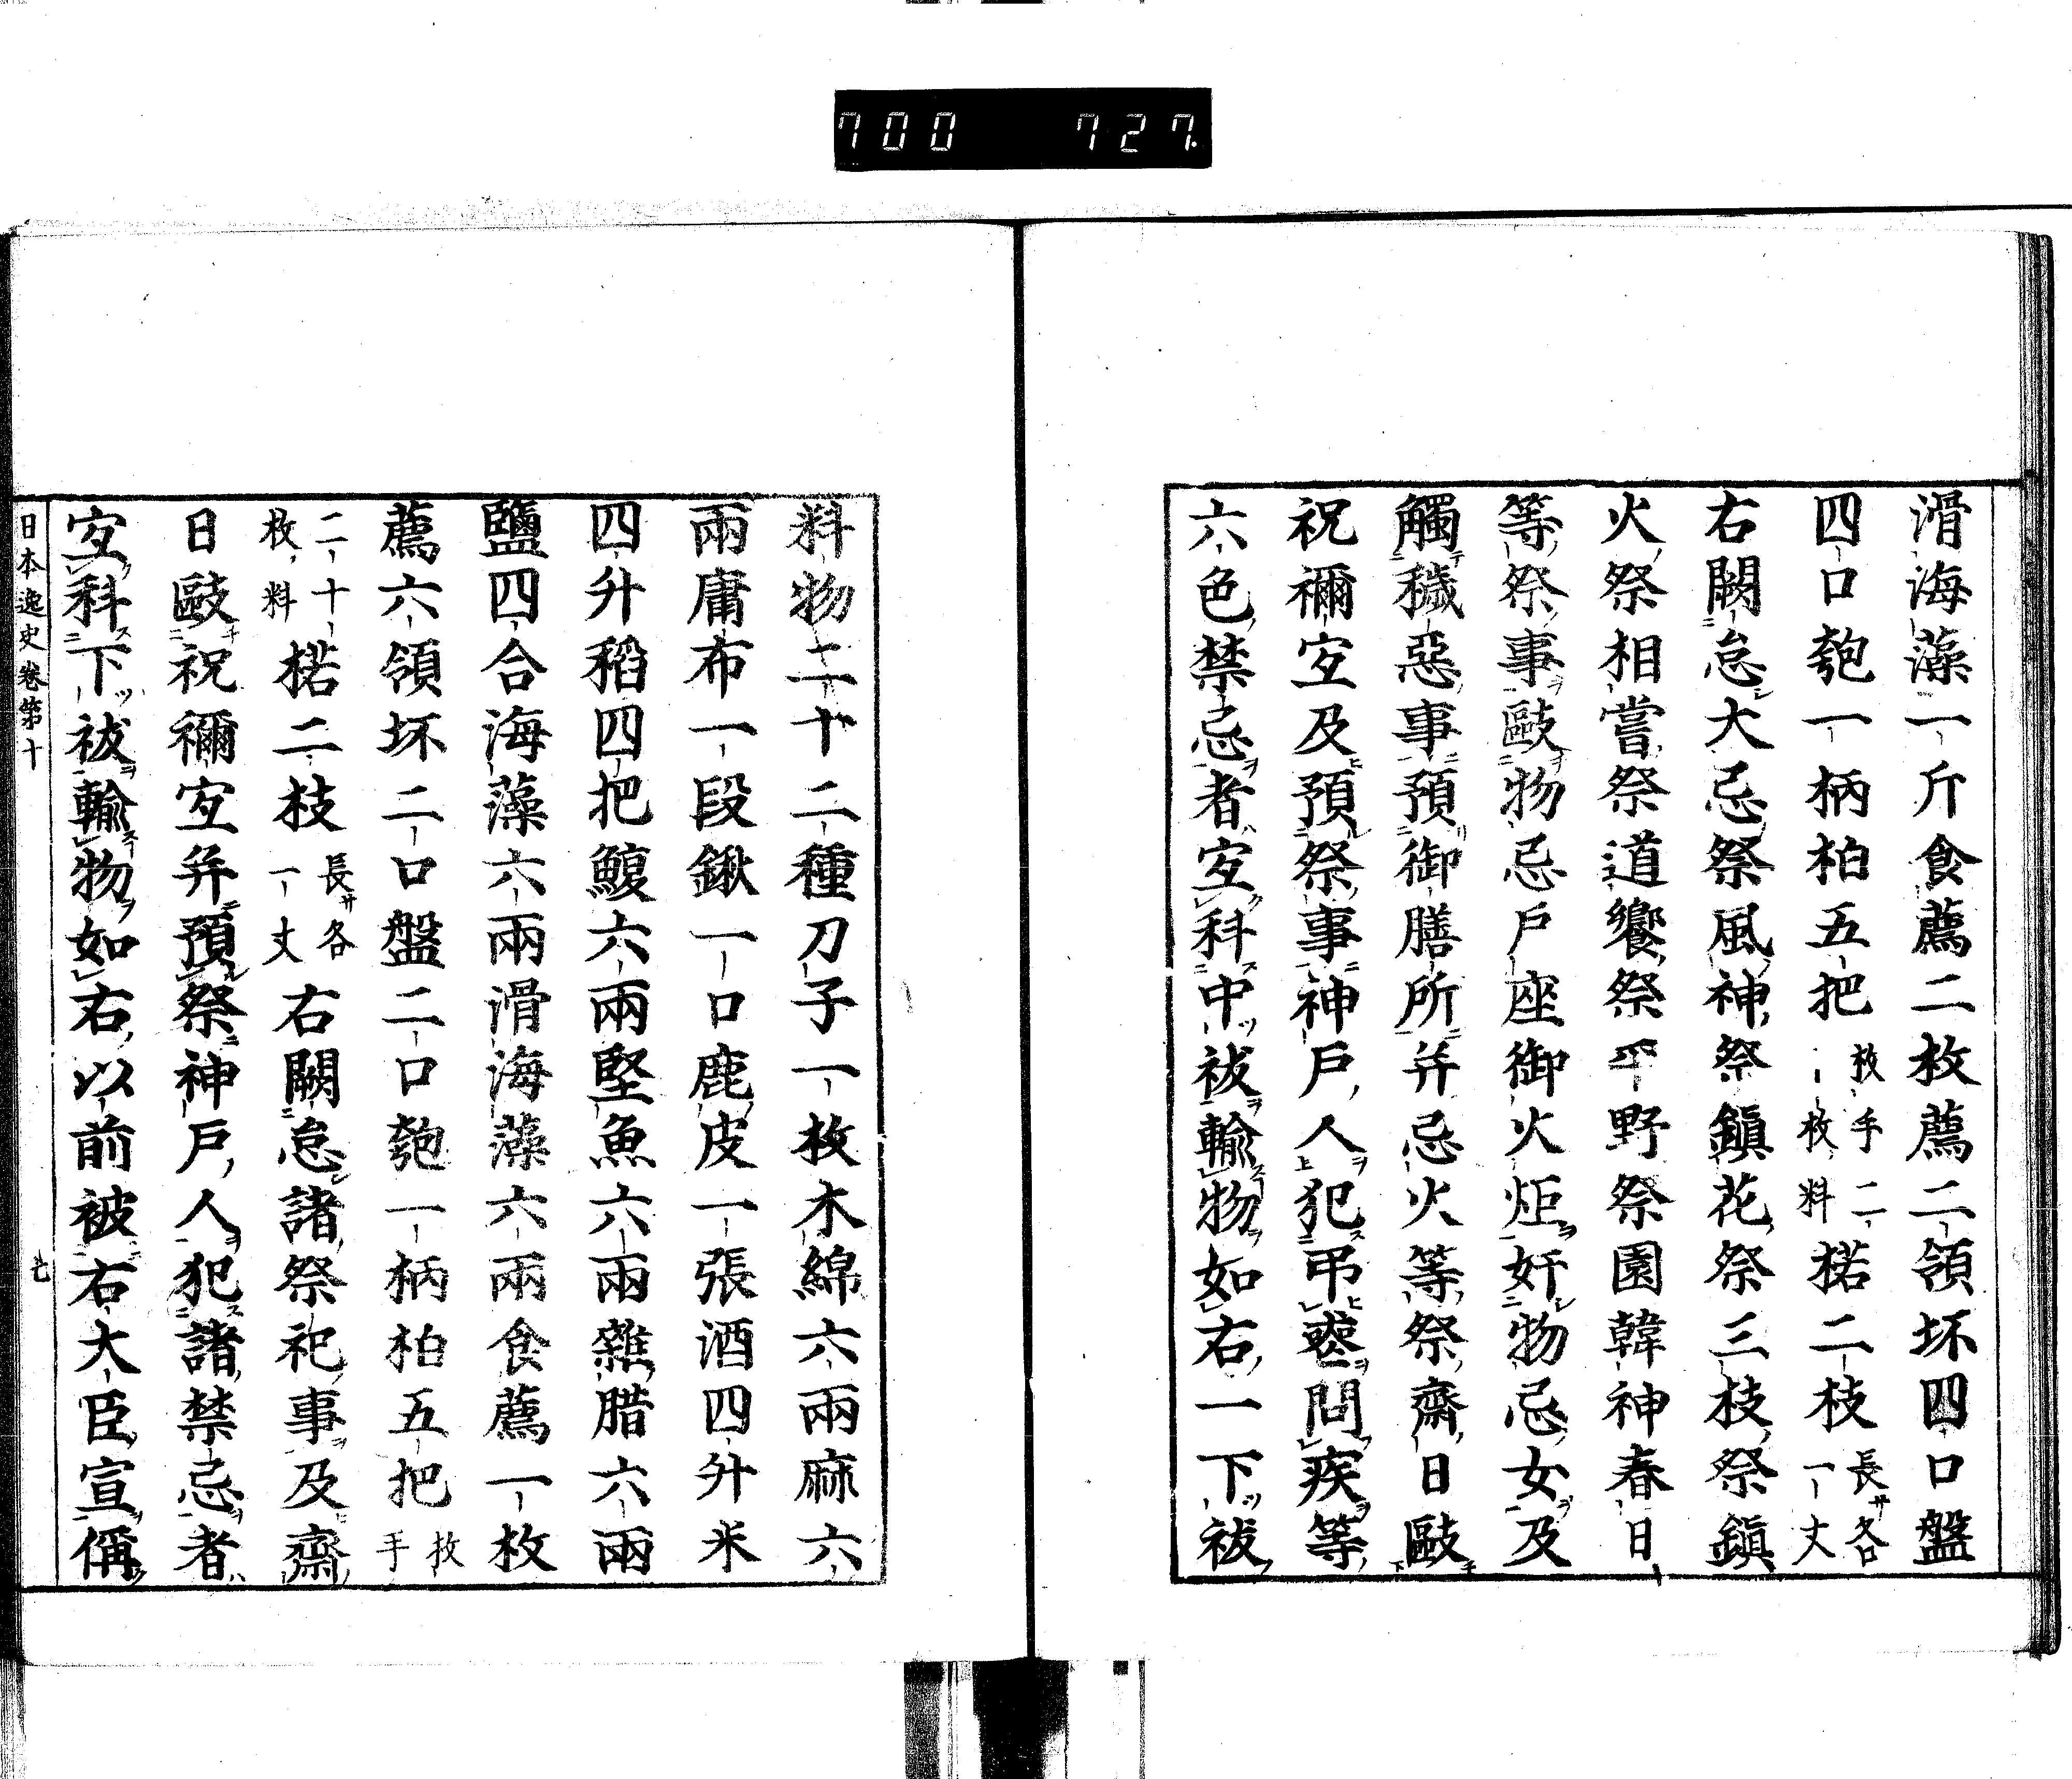 700 727
滑海藻一斤食薦二枚薦二領坏四口盤
四口匏一柄柏五把枚手二枚料楉二枝長各一丈
右闕怠大忌祭風神祭鎭花祭三枝祭鎭
火祭相嘗祭道饗祭平野祭園韓神春日
等祭事毆物忌戸座御火炬奸物忌女及
觸穢惡事預御膳所并忌火等祭齋日毆
祝禰宜及預祭事神戸人犯弔喪問疾等
六色禁忌者宜科中祓輸物如右一下祓
料物二十二種刀子一枚木綿六兩麻六
兩庸布一段鍬一口鹿皮一張酒四升米
四升稻四把鰒六兩堅魚六兩雜腊六兩
鹽四合海藻六兩滑海藻六兩食薦一枚
薦六領坏二口盤二口匏一柄柏五把枚手
二十枚料楉二枝長各一丈右闕怠諸祭祀事及齋
日毆祝禰宜并預祭神戸人犯諸禁忌者
宜科下祓輸物如右以前被右大臣宣偁
日本逸史卷第十